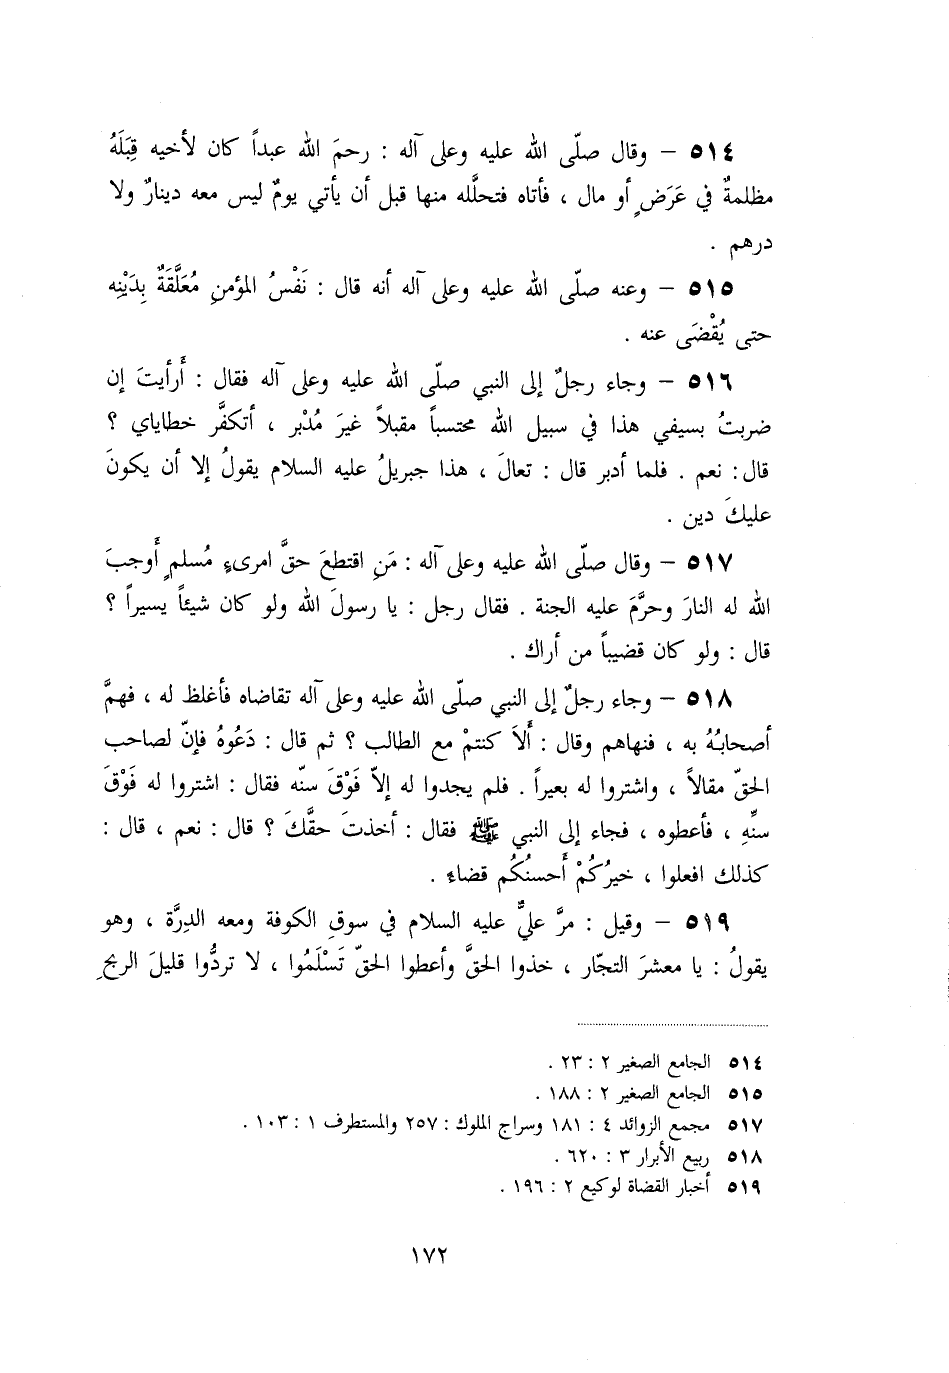 ٥١٤ – وقال صلّى الله عليه وعلى آله : رحمَ الله عبداً كان لأخيه قِبَلَهُ
مظلمةٌ في عَرَضٍ أو مال ، فأتاه فتحلَّله منها قبل أن يأتي يومٌ ليس معه دينارٌ ولا
درهم .
٥١٥ – وعنه صلّى الله عليه وعلى آله أنه قال : نَفْسُ المؤمنِ مُعَلَّقَةٌ بِدَيْنِه
حتى يُقْضَى عنه .
٥١٦ – وجاء رجلٌ إلى النبي صلّى الله عليه وعلى آله فقال : أَرأيتَ إن
ضربتُ بسيفي هذا في سبيل الله محتسباً مقبلاً غيرَ مُدْبر ، أتكفَّر خطاياي ؟
قال : نعم . فلما أدبر قال : تعالَ ، هذا جبريلُ عليه السلام يقولُ إلا أن يكونَ
عليكَ دين .
٥١٧ – وقال صلّى الله عليه وعلى آله : مَنِ اقتطعَ حقَّ امرىءٍ مُسلمٍ أَوجبَ
الله له النارَ وحرَّمَ عليه الجنة . فقال رجل : يا رسولَ الله ولو كان شيئاً يسيراً ؟
قال : ولو كان قضيباً من أراك .
٥١٨ – وجاء رجلٌ إلى النبي صلّى الله عليه وعلى آله تقاضاه فأغلظ له ، فهمَّ
أصحابُهُ به ، فنهاهم وقال : أَلاَ كنتمْ مع الطالب ؟ ثم قال : دَعُوهُ فإنّ لصاحب
الحقّ مقالاً ، واشتروا له بعيراً . فلم يجدوا له إلاّ فَوْقَ سنّه فقال : اشتروا له فَوْقَ
سنِّهِ ، فأعطوه ، فجاء إلى النبي ﷺ فقال : أخذتَ حقَّكَ ؟ قال : نعم ، قال :
كذلك افعلوا ، خيرُكُمْ أَحسنُكُم قضاء .
٥١٩ – وقيل : مرَّ عليٌّ عليه السلام في سوقِ الكوفة ومعه الدِرَّة ، وهو
يقولُ : يا معشرَ التجّار ، خذوا الحقَّ وأعطوا الحقّ تَسْلَمُوا ، لا تردُّوا قليلَ الربحِ
٥١٤ الجامع الصغير ٢ : ٢٣ .
٥١٥ الجامع الصغير ٢ : ١٨٨ .
٥١٧ مجمع الزوائد ٤ : ١٨١ وسراج الملوك : ٢٥٧ والمستطرف ١ : ١٠٣ .
٥١٨ ربيع الأبرار ٣ : ٦٢٠ .
٥١٩ أخبار القضاة لوكيع ٢ : ١٩٦ .
١٧٢